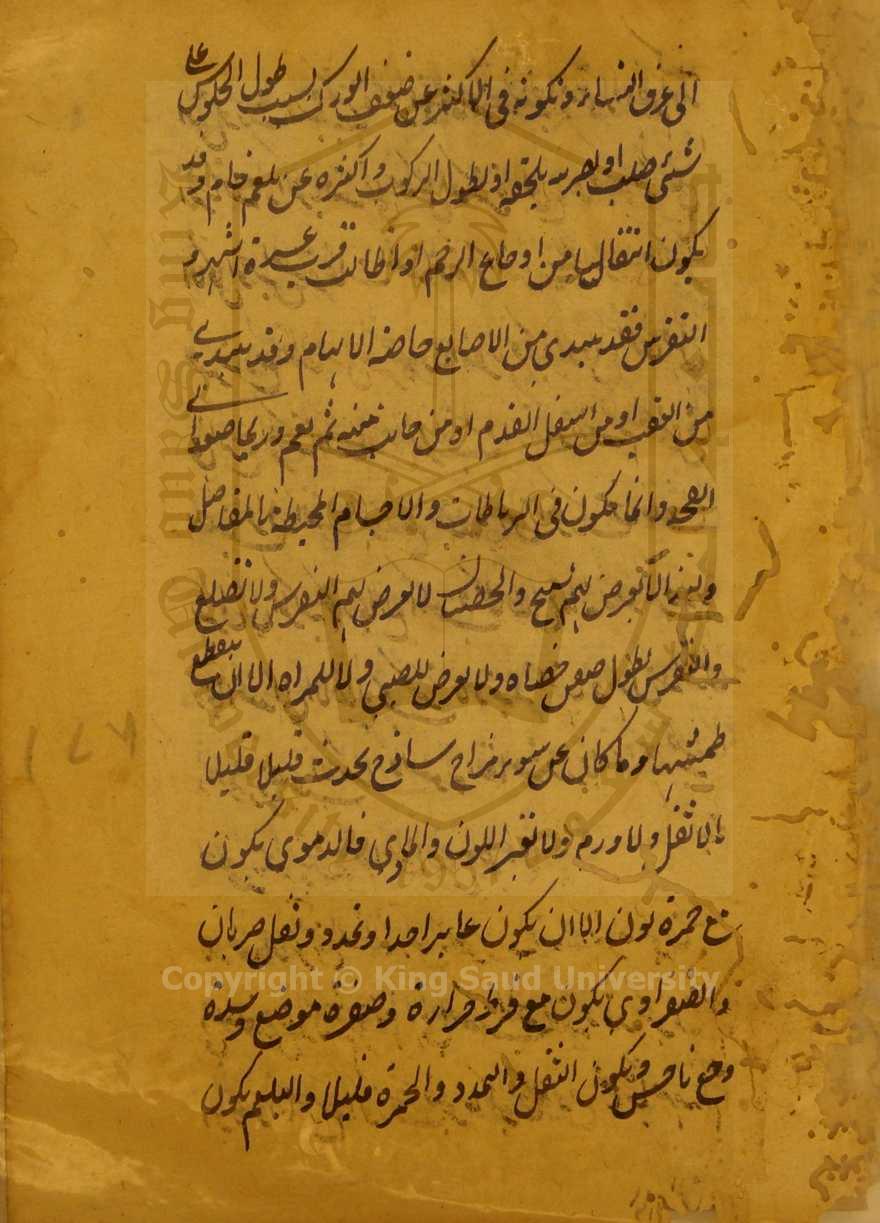 الى عرق النساء وتكونه فى الاكثر عن ضعف الورك بسبب طول الجلوس على
شئ صلب او لضربه يلحقه او لطول الركوب واكثره عن بلغم خام وقد
يكون انتقاليا من اوجاع الرحم اذا طالت قرب عشرة اشهر و
النقرس فقد يبتدى من الاصابع خاصه الابهام وقد يبتدى
من العقب او من اسفل القدم او من جانب منه ثم يعم وربما صعد الى
الفخذ وانما يكون فى الرباطات والاجسام المحيطة بالمفاصل
والخصيان لا يعرض لهم النقرس ولا الصلع
والنقرس يطول ولا يعرض للصبى ولا للمراه الا ان ينقطع
طمثها وما كان عن سوء مزاج ساذج يحدث قليلا قليلا
بلا ثقل ولا ورم ولا تغير اللون والمادى فالدموى يكون
مع حمرة لون الا ان يكون غايرا جدا وتمدد وثقل ضربان
والصفراوى يكون مع فرط حرارة وصفرة موضع وشدة
وجع ناخس ويكون الثقل والتمدد والحمرة قليلا والبلغم يكون
١٦٧
Copyright © King Saud University